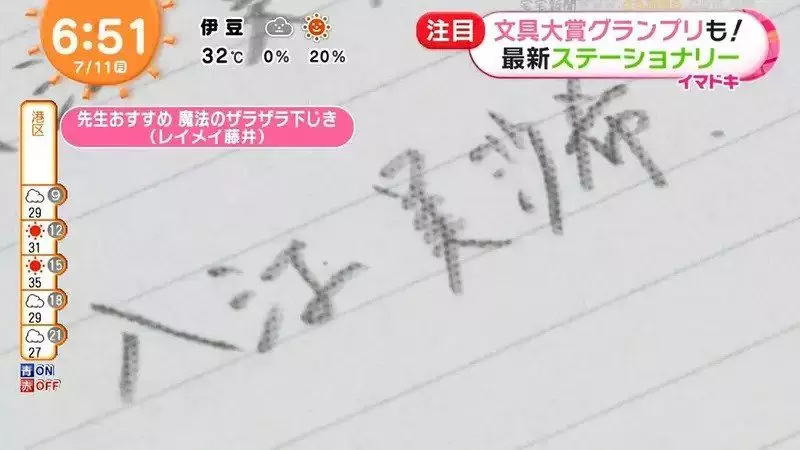 6:51
7/11月
伊豆
32℃ 0% 20%
注目
文具大賞グランプリも!
最新ステーショナリー
イマドキ
先生おすすめ 魔法のザラザラ下じき
(レイメイ藤井)
港区
9
29
12
31
15
35
18
29
21
27
青ON
赤OFF
入江